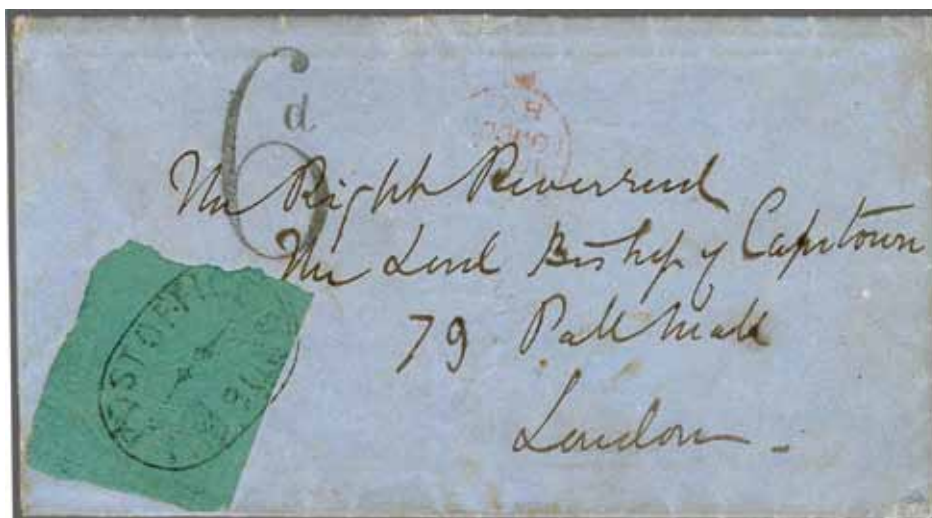 6d
The Right Reverend
The Lord Bishop of Capetown
79 Pall Mall
London